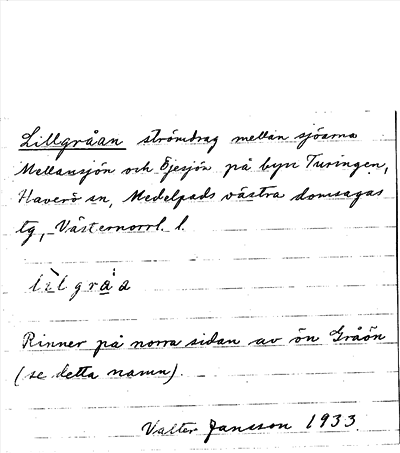 Lillgråan strömdrag mellan sjöarna
Mellansjön och Öjesjön på byn Turingen,
Haverö sn, Medelpads västra domsagas
tg, Västernorrl. l.
Rinner på norra sidan av ön Gråön
(se detta namn).
Valter Jansson 1933.